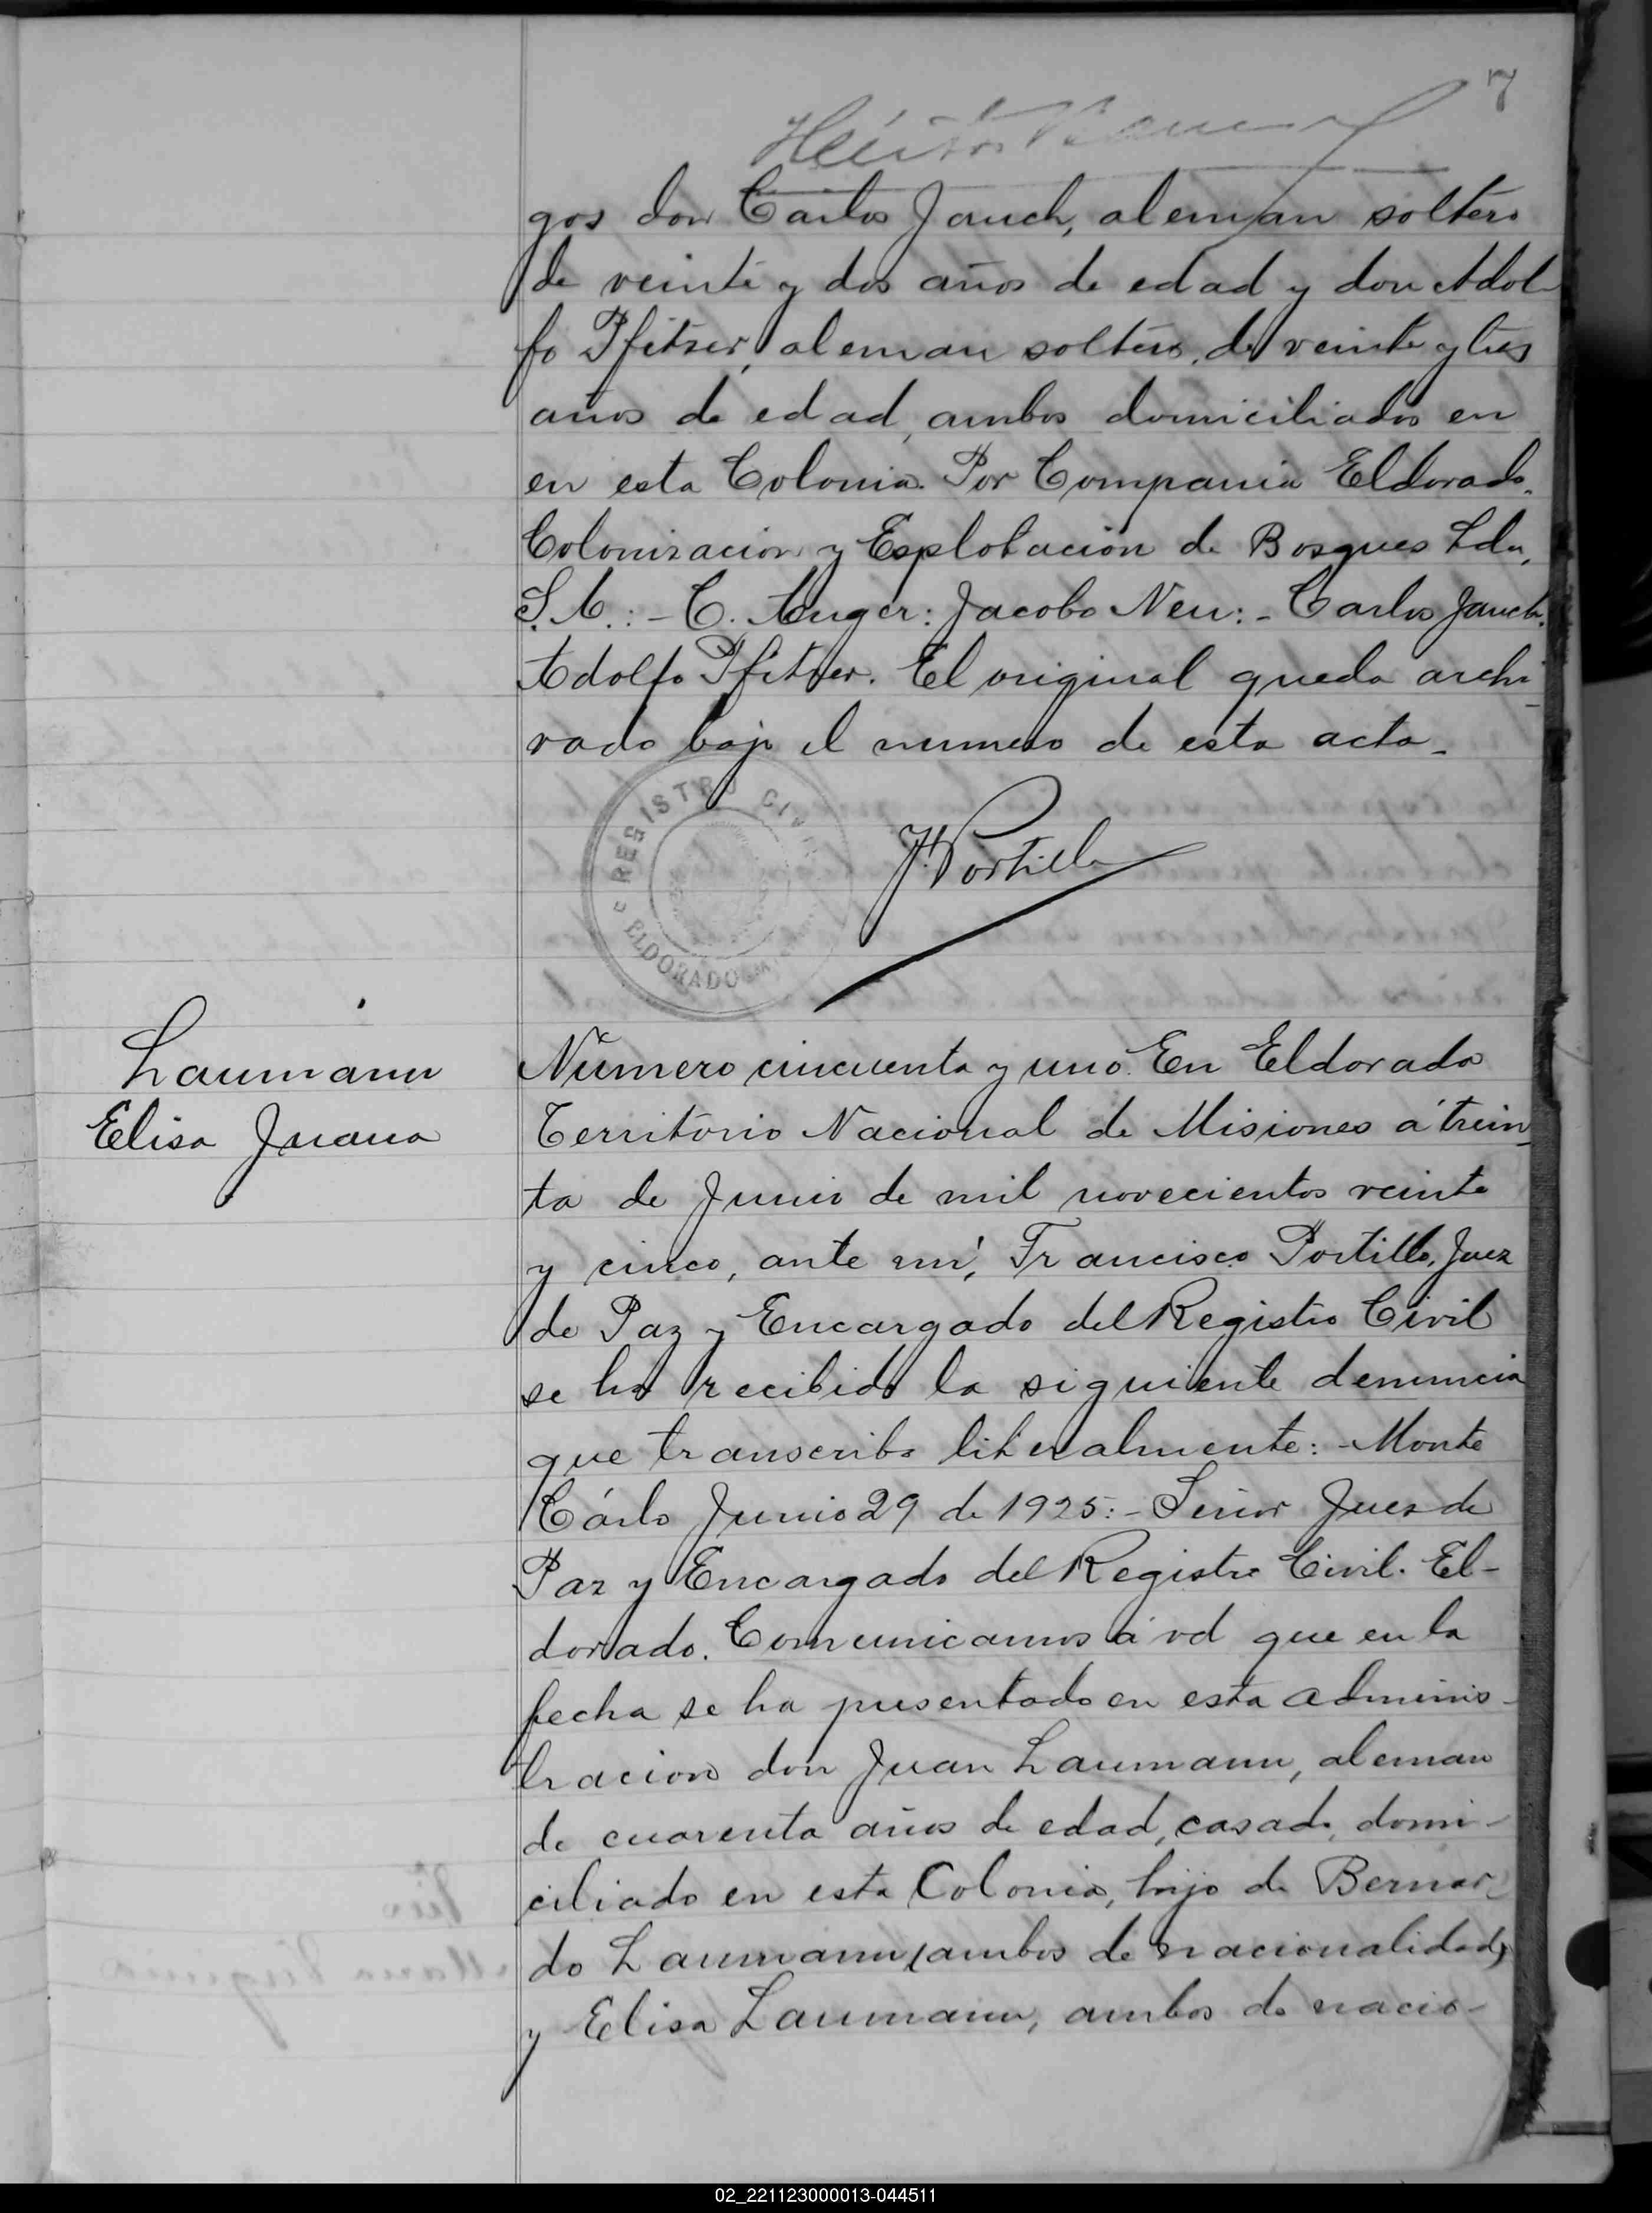 7
Héctor
gos don Carlos Jauch, aleman soltero
de veinte y dos años de edad y don Adol-
fo Pfitzer, aleman soltero, de veinte y tres
años de edad, ambos domiciliados en
en esta Colonia. Por Compania Eldorado,
Colonizacion y Esplotacion de Bosques Lda,
S.A.: - C. Auger: Jacobo Neu: - Carlos Jauch.
Adolfo Pfitzer. El original queda archi-
vado bajo el numero de esta acta.
REGISTRO CIVIL
ELDORADO
F. Portillo
Laumann
Elisa Juana
Número cincuenta y uno. En Eldorado
Territorio Nacional de Misiones á trein-
ta de Junio de mil novecientos veinte
y cinco, ante mi, Francisco Portillo, Juez
de Paz y Encargado del Registro Civil
se ha recibido la siguiente denuncia
que transcribo literalmente: - Monte
Cárlo Junio 29 de 1925: - Señor Juez de
Paz y Encargado del Registro Civil. El-
dorado. Comunicamos á vd que en la
fecha se ha presentado en esta adminis-
tracion don Juan Laumann, aleman
de cuarenta años de edad, casado, domi-
ciliado en esta Colonia, hijo de Bernar-
do Laumann (ambos de nacionalidad)
y Elisa Laumann, ambos de nacio-
02_221123000013-044511